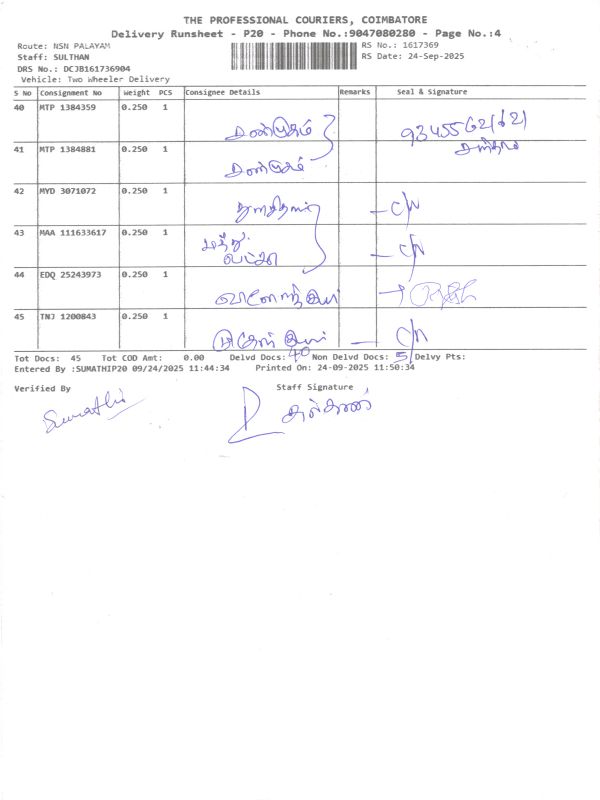 THE PROFESSIONAL COURIERS, COIMBATORE
Delivery Runsheet - P20 - Phone No.:9047080280 - Page No.:4
Route: NSN PALAYAM
RS No.: 1617369
Staff: SULTHAN
RS Date: 24-Sep-2025
DRS No.: DCJB161736904
Vehicle: Two Wheeler Delivery
S No Consignment No Weight PCS Consignee Details Remarks Seal & Signature
40 MTP 1384359 0.250 1
41 MTP 1384881 0.250 1
42 MYD 3071072 0.250 1 C/N
43 MAA 111633617 0.250 1 C/N
44 EDQ 25243973 0.250 1
45 TNJ 1200843 0.250 1 C/N
Tot Docs: 45 Tot COD Amt: 0.00 Delvd Docs: 40 Non Delvd Docs: 5 Delvy Pts:
Entered By :SUMATHIP20 09/24/2025 11:44:34 Printed On: 24-09-2025 11:50:34
Verified By Staff Signature
Sumathi